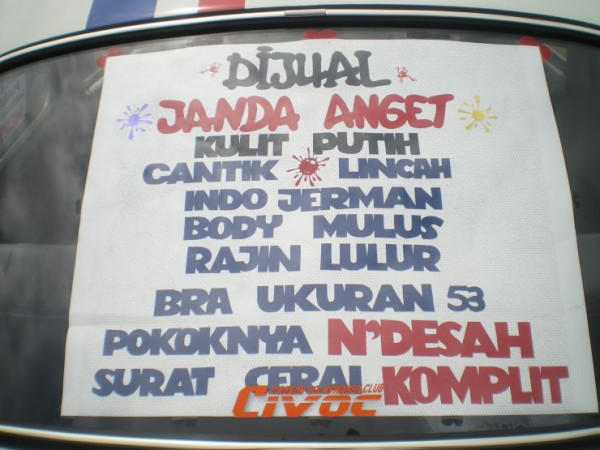 DIJUAL
JANDA ANGET
KULIT PUTIH
CANTIK LINCAH
INDO JERMAN
BODY MULUS
RAJIN LULUR
BRA UKURAN 53
POKOKNYA N'DESAH
SURAT CERAI KOMPLIT
CLUB
CIVOC